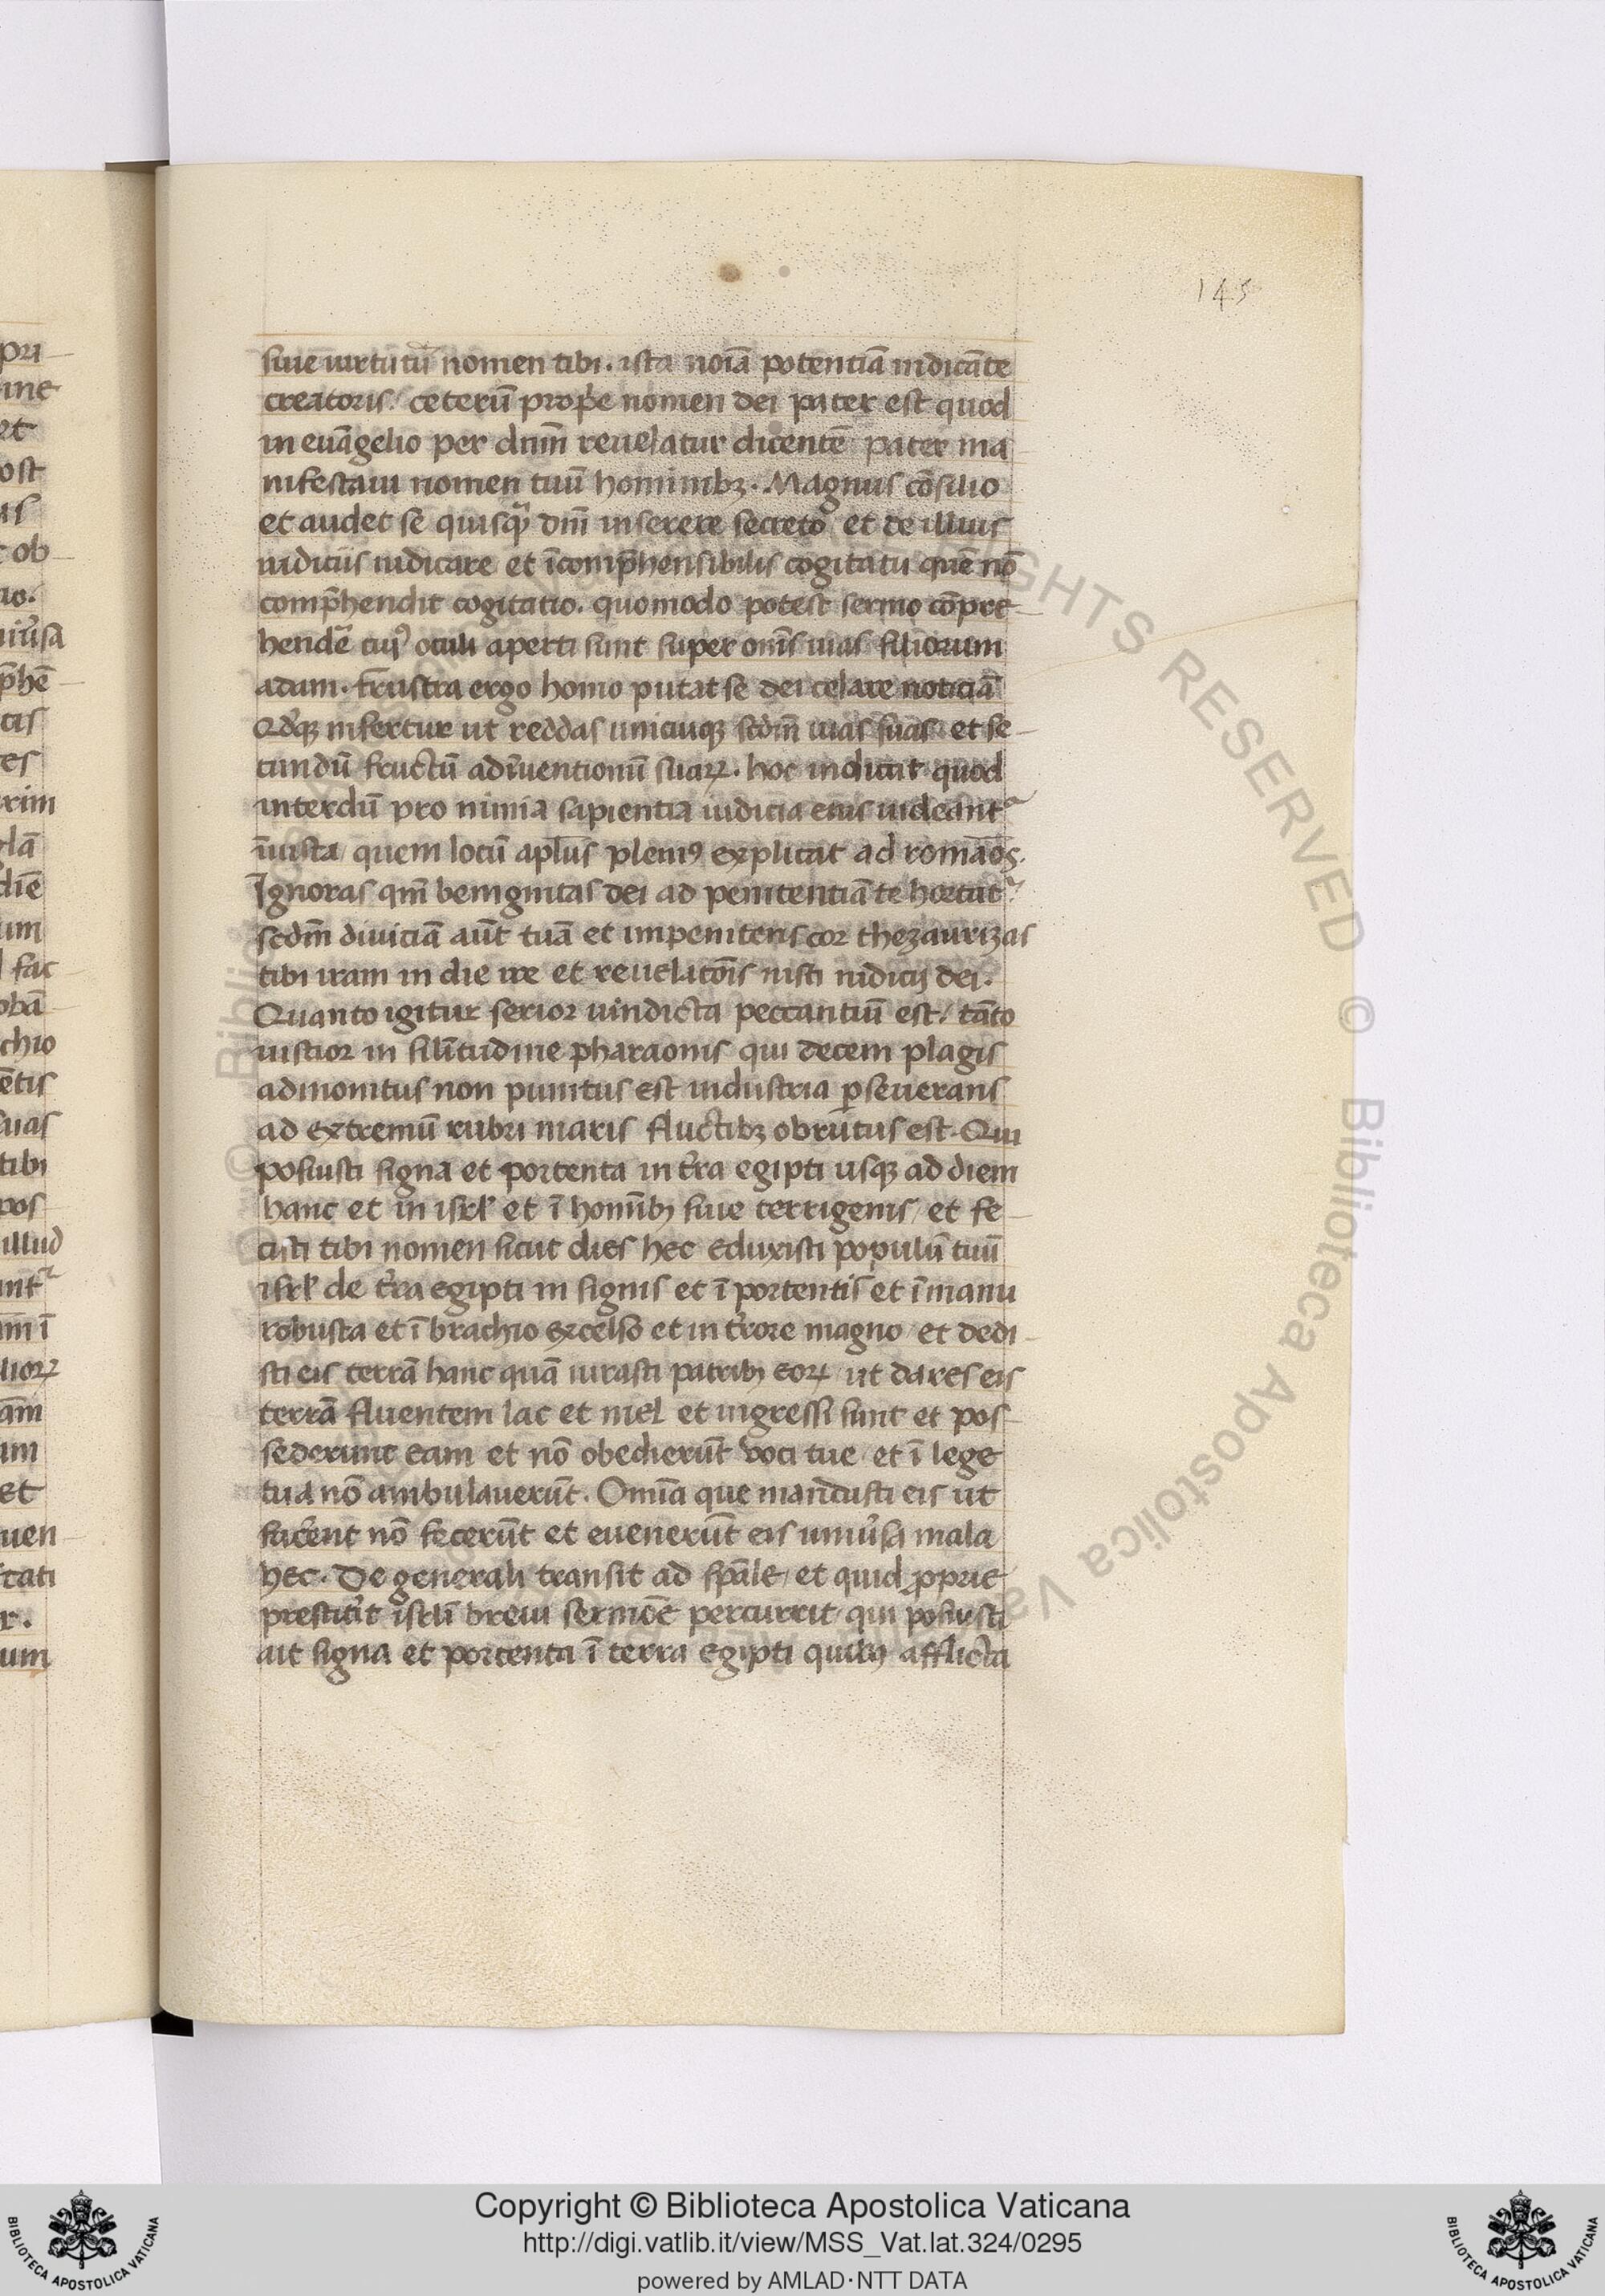 145
siue uirtutū nomen tibi. ista noīa potentiā indicāte
creatoris. ceterū prop̄e nomen dei pater est quod
in euāgelio per dnm̄ reuelatur dicentē pater ma
nifestaui nomen tuū hominibꝫ. Magnus cōsilio
et audet se quisqᷓ dn̄i inserere secreto et de illius
iudiciis iudicare et īcomp̄hensibilis cogitatu quē nō
comp̄hendit cogitatio. quomodo potest sermo cōpre
hendē cuiꝰ oculi aperti sunt super om̄s uias filiorum
adam. frustra ergo homo putat se dei celare noticiā
Qd̓qꝫ infertur ut reddas unicuiqꝫ scd̄m uias suas et se
cundū fructū adīuentionū suaꝝ. hoc indicat quod
interdū pro nimia sapientia iudicia eius uideant᷑
īiusta quem locū apl̄us pleniꝰ explicat ad romāos.
Ignoras qm̄ benignitas dei ad penitentiā te hortat᷑
scd̄m duriciā aūt tuā et impenitens cor thezaurizas
tibi iram in die ire et reuelatōis iusti iudicij dei.
Quanto igitur serior uindicta peccantiū est. tāto
iustior in silītudine pharaonis qui decem plagis
admonitus non punitus est industria ꝑseuerans
ad extremū rubri maris fluctibꝫ obrutus est. Qui
posuisti signa et portenta in t̓ra egipti usqꝫ ad diem
hanc et in isrl̄ et ī hominibꝫ siue terrigenis et fe
cisti tibi nomen sicut dies hec eduxisti populū tuū
isrl̄ de t̓ra egipti in signis et ī portentis et ī manu
robusta et ī brachio excelso et in t̓rore magno et dedi
sti eis terrā hanc quā iurasti patribꝫ eoꝝ ut dares eis
terrā fluentem lac et mel et ingressi sunt et pos
sederunt eam et nō obedierūt voci tue et ī lege
tua nō ambulauerūt. Omīa que mandasti eis ut
fac̓ent nō fecerūt et euenerūt eis uniu̓sa mala
hec. De generali transit ad sp̄ale et quid ꝓprie
prestit̓it isrl̄i breui sermōe percurrit qui posuisti
ait signa et portenta ī terra egipti quibꝫ afflicta
Copyright © Biblioteca Apostolica Vaticana
http://digi.vatlib.it/view/MSS_Vat.lat.324/0295
powered by AMLAD·NTT DATA